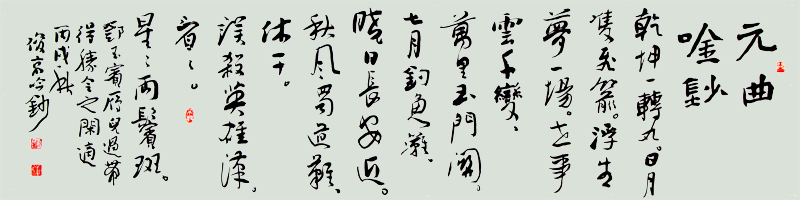 元曲
唫鈔
乾坤一轉丸。日月
雙飛箭。浮生
夢一場。世事
雲千變、
萬里玉門關。
七月釣魚灘、
曉日長安近。
秋风蜀道難、
休干。
誤殺英雄漢。
看〻。
星〻兩鬢斑。
鄧玉賓雁兒過帶
得勝令之閑適
丙戌秋
吟鈔